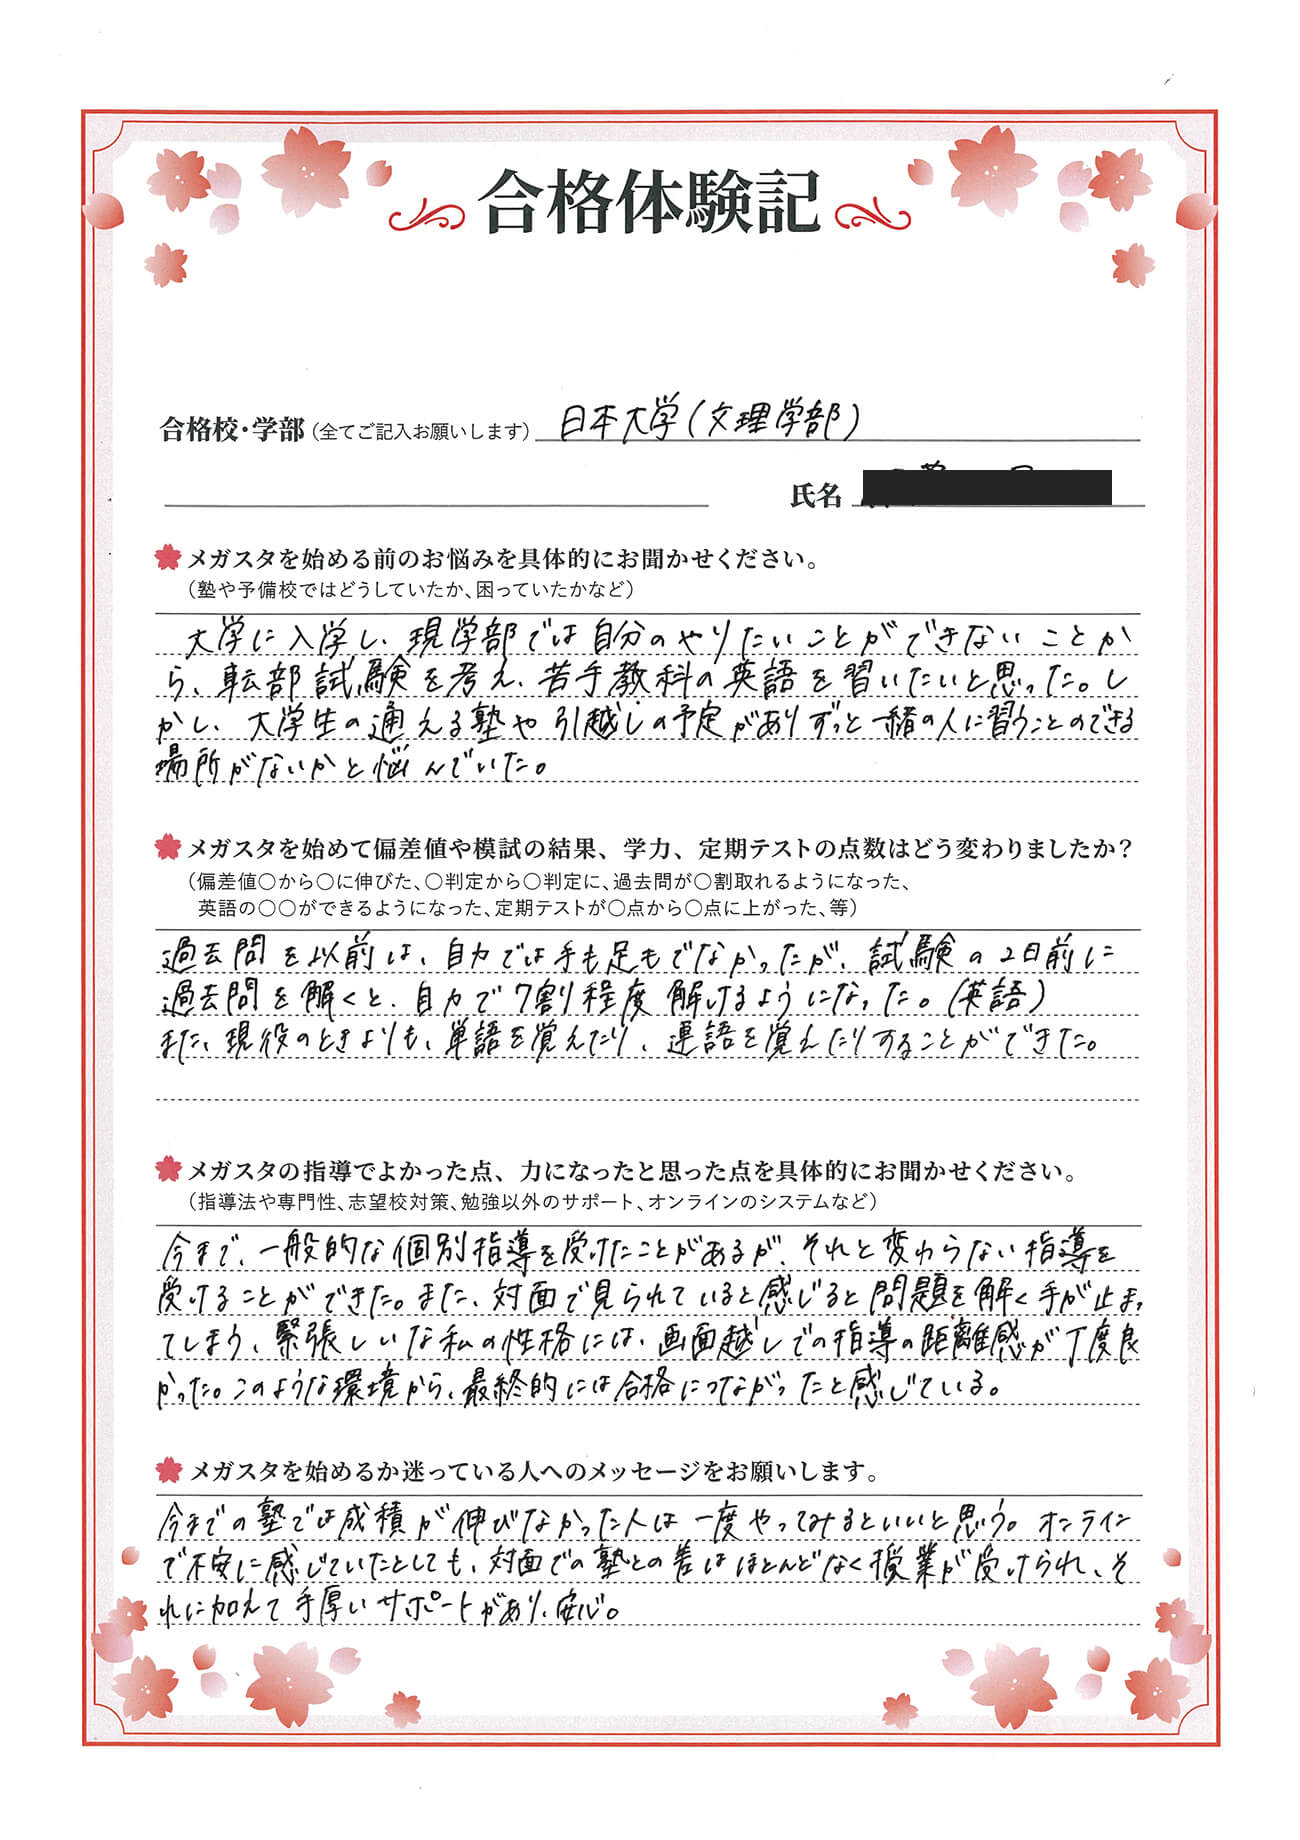 合格体験記
合格校・学部（全てご記入お願いします） 日本大学（文理学部）
氏名
メガスタを始める前のお悩みを具体的にお聞かせください。
（塾や予備校ではどうしていたか、困っていたかなど）
大学に入学し、現学部では自分のやりたいことができないことか
ら、転部試験を考え、苦手教科の英語を習いたいと思った。し
かし、大学生の通える塾や引越しの予定がありずっと一緒の人に習うことのできる
場所がないかと悩んでいた。
メガスタを始めて偏差値や模試の結果、学力、定期テストの点数はどう変わりましたか？
（偏差値〇から〇に伸びた、〇判定から〇判定に、過去問が〇割取れるようになった、
英語の〇〇ができるようになった、定期テストが〇点から〇点に上がった、等）
過去問を以前は、自力では手も足もでなかったが、試験の2日前に
過去問を解くと、自力で7割程度解けるようになった。（英語）
また、現役のときよりも、単語を覚えたり、連語を覚えたりすることができた。
メガスタの指導でよかった点、力になったと思った点を具体的にお聞かせください。
（指導法や専門性、志望校対策、勉強以外のサポート、オンラインのシステムなど）
今まで、一般的な個別指導を受けたことがあるが、それと変わらない指導を
受けることができた。また、対面で見られていると感じると問題を解く手が止まっ
てしまう、緊張しいな私の性格には、画面越しでの指導の距離感が丁度良
かった。このような環境から、最終的には合格につながったと感じている。
メガスタを始めるか迷っている人へのメッセージをお願いします。
今までの塾では成積が伸びなかった人は一度やってみるといいと思う。オンライン
で不安に感じていたとしても、対面での塾との差はほとんどなく授業が受けられ、そ
れに加えて手厚いサポートがあり、安心。